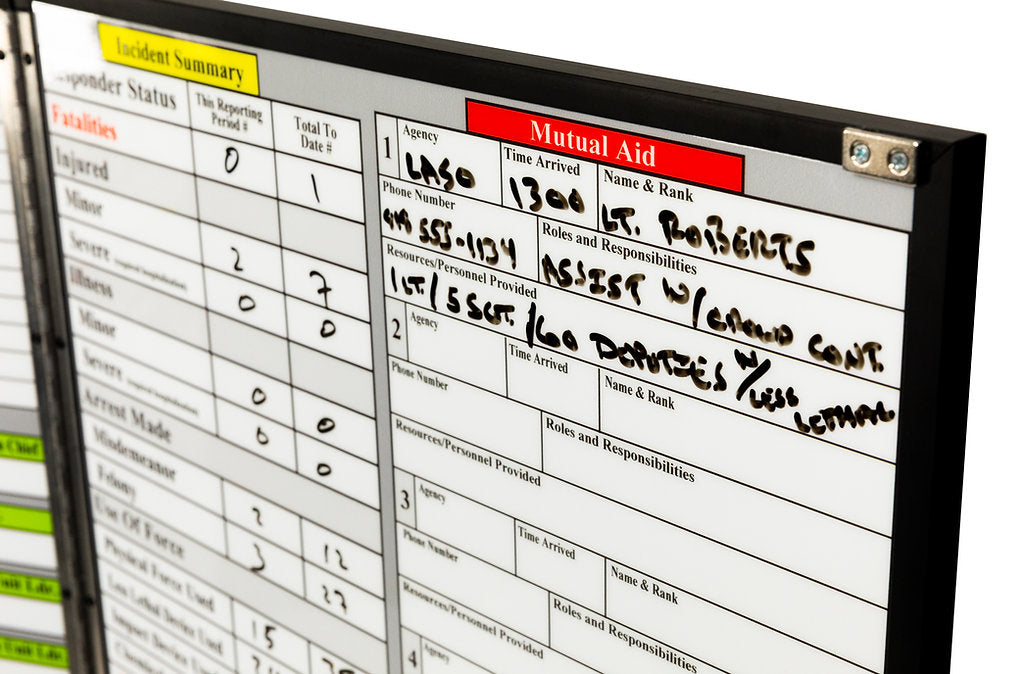 Incident Summary
Responder Status
This Reporting Period #
Total To Date #
Fatalities 0 1
Injured
Minor 2 7
Severe 0 0
Illness
Minor 0 0
Severe 0 0
Arrest Made
Misdemeanor 2 12
Felony 3 27
Use Of Force
Physical Force Used 15
Less Lethal Device Used
Impact Device
Mutual Aid
1 Agency LASO
Time Arrived 1300
Name & Rank LT. ROBERTS
Phone Number 555-1134
Roles and Responsibilities ASSIST W/CROWD CONT.
Resources/Personnel Provided
1 LT/5 SGT./60 DEPUTIES W/LESS LETHAL
2 Agency
Time Arrived
Name & Rank
Phone Number
Roles and Responsibilities
Resources/Personnel Provided
3 Agency
Time Arrived
Name & Rank
Phone Number
Roles and Responsibilities
Resources/Personnel Provided
4 Agency
Chief
Unit Ldr.
Unit Ldr.